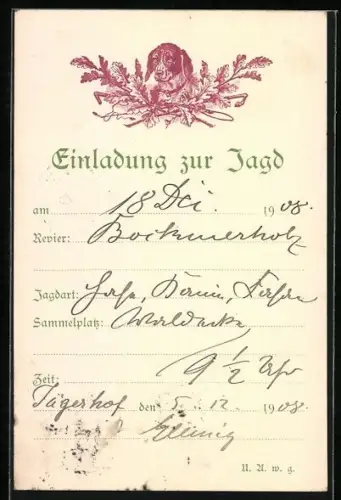 Einladung zur Jagd
am 18 Dci. 1908.
Revier: Bockmerholz
Jagdart: Hase,
Sammelplatz: Waldecke,
Zeit: 9 1/2 Uhr
Jägerhof den 5. 12. 1908
U. A. w. g.